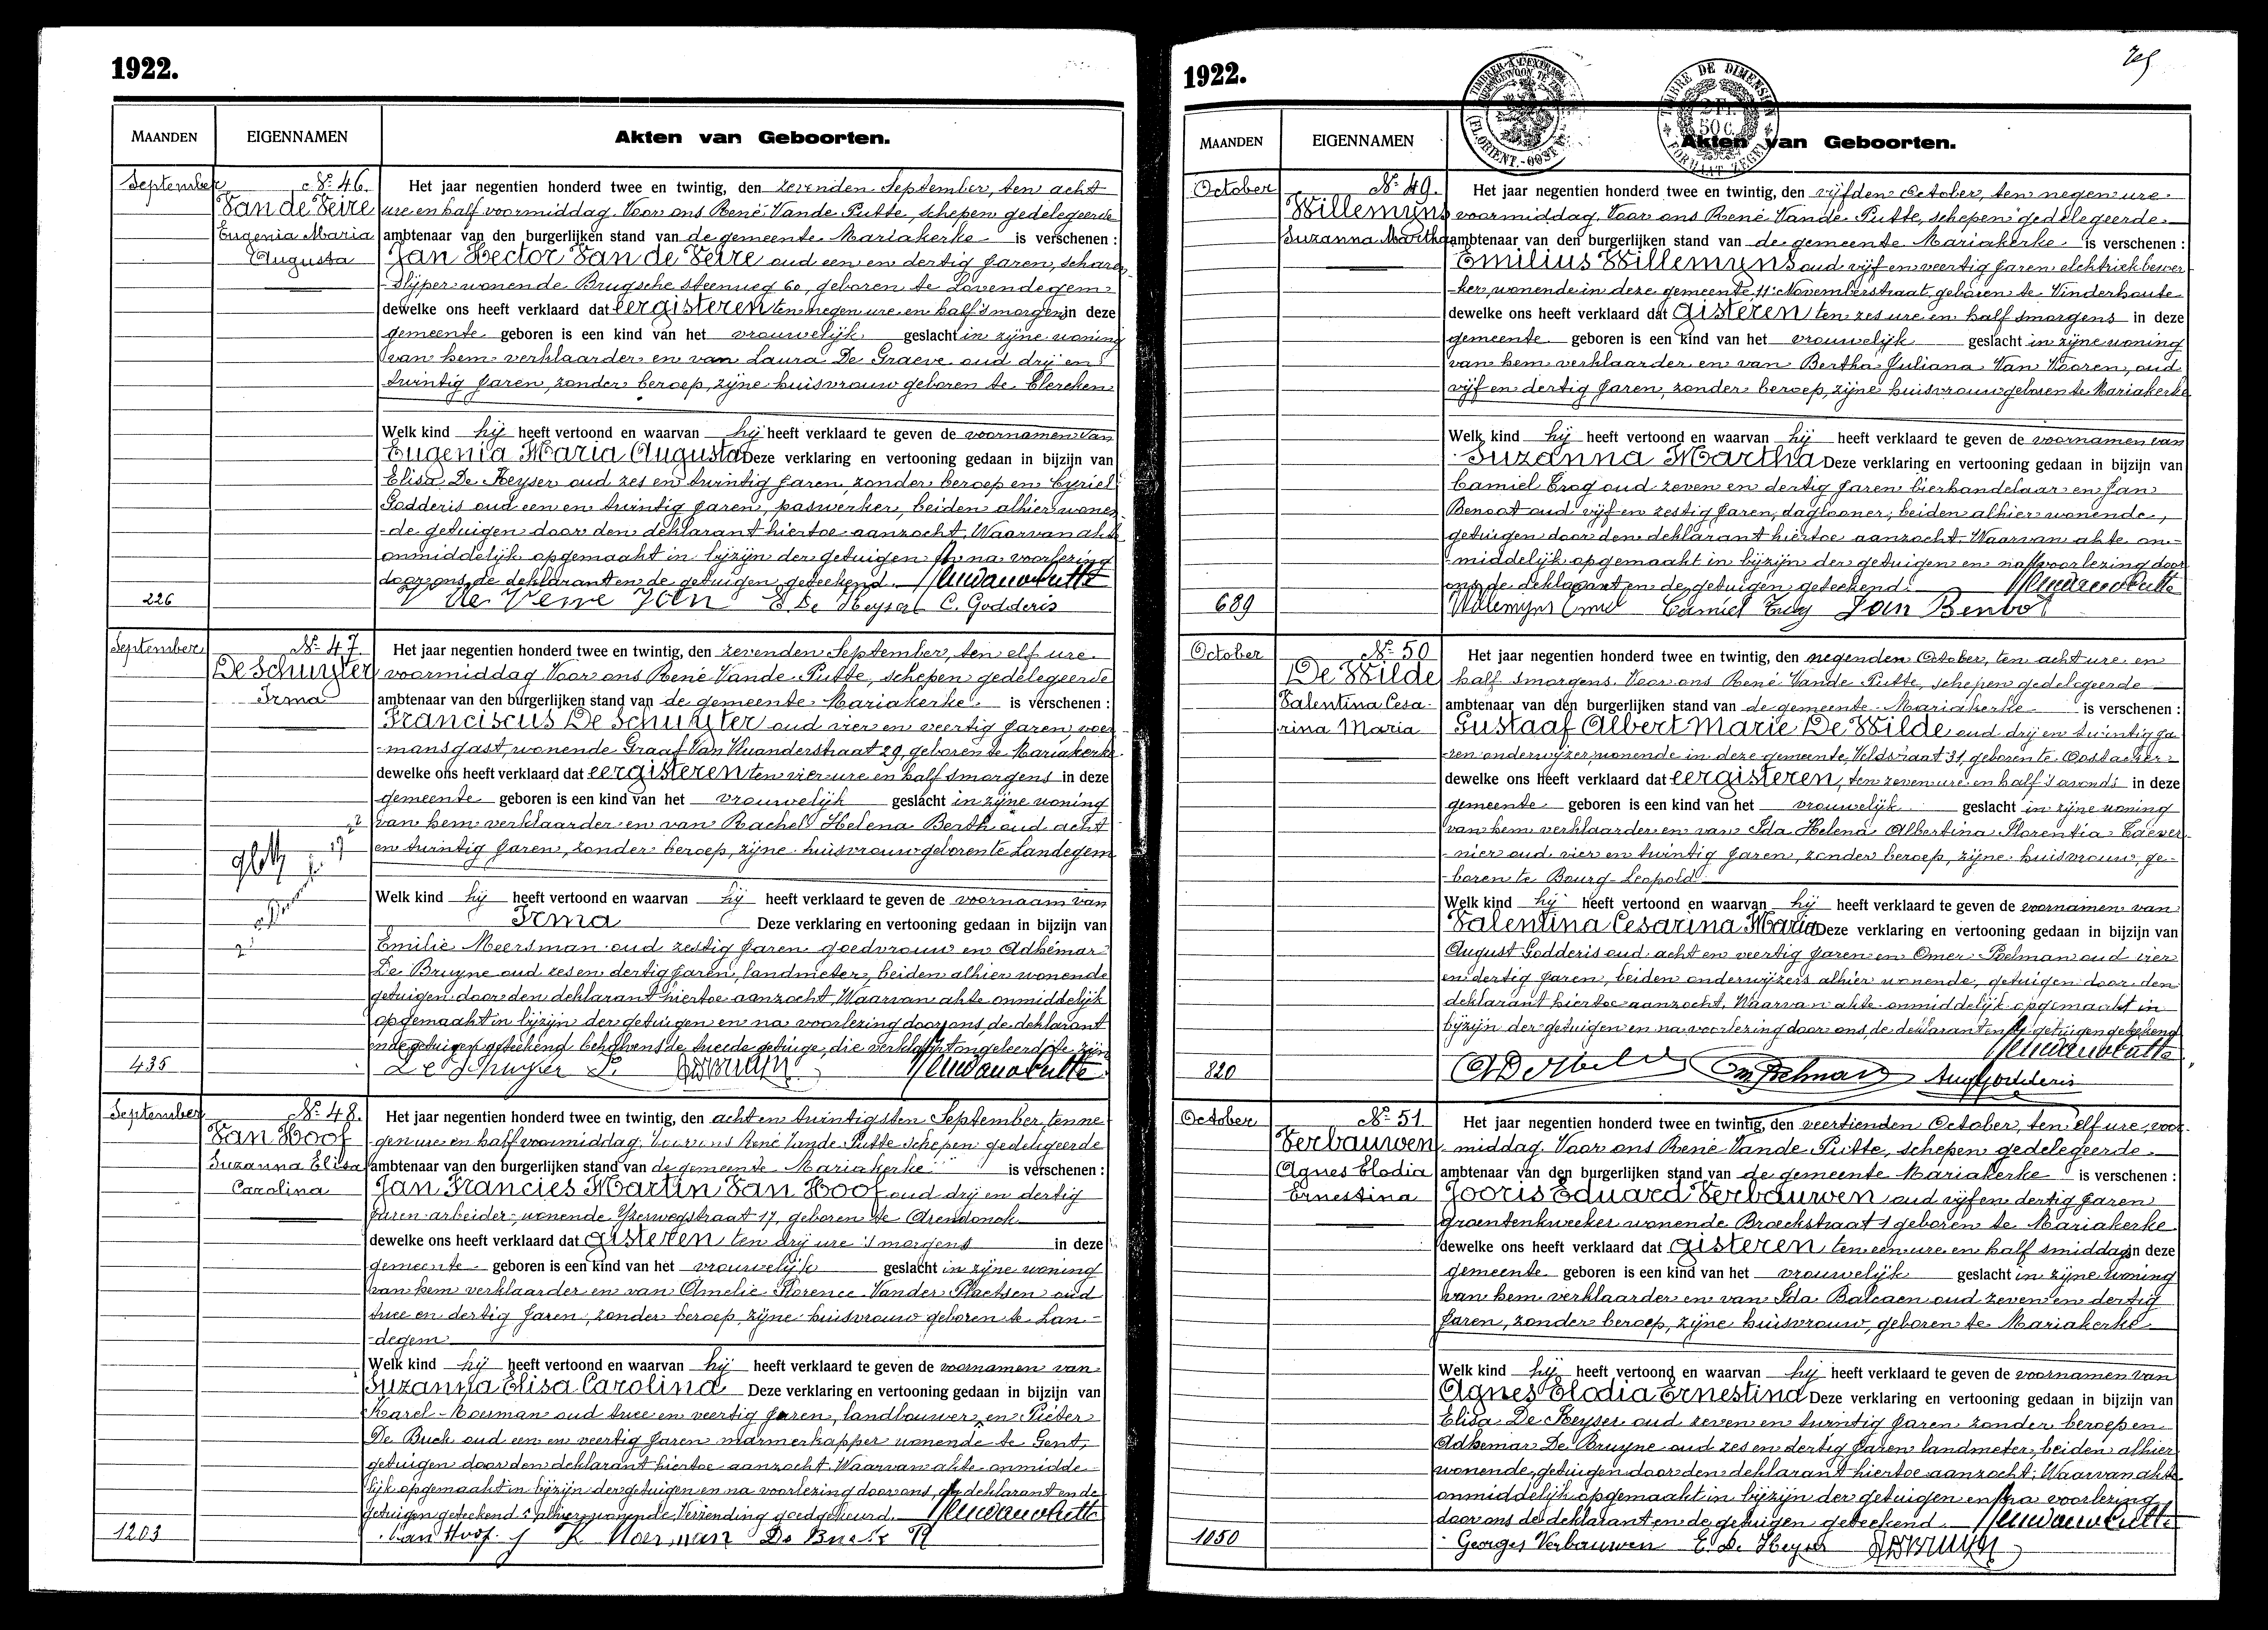 1922.
MAANDEN EIGENNAMEN Akten van Geboorten.
September
No 46.
Van de Veire
Eugenia Maria
Augusta
226
Het jaar negentien honderd twee en twintig, den zevenden September, ten acht
ure en half voormiddag. Voor ons René Vande Putte, schepen gedelegeerde
ambtenaar van den burgerlijken stand van de gemeente Mariakerke is verschenen :
Jan Hector Van de Veire oud een en dertig jaren, scharen-
-slijper wonende Brugsche steenweg 60, geboren te Lovendegem
dewelke ons heeft verklaard dat eergisteren ten negen ure en half 's morgens in deze
gemeente geboren is een kind van het vrouwelijk geslacht in zijne woning
van hem verklaarder en van Laura De Graeve oud drij en
twintig jaren, zonder beroep, zijne huisvrouw geboren te Clercken
Welk kind hij heeft vertoond en waarvan hij heeft verklaard te geven de voornamen van
Eugenia Maria Augusta Deze verklaring en vertooning gedaan in bijzijn van
Elisa De Keyser oud zes en twintig jaren, zonder beroep en Cyriel
Godderis oud een en twintig jaren, paswerker, beiden alhier wonen-
-de getuigen door den deklarant hiertoe aanzocht. Waarvan akte
onmiddelijk opgemaakt in bijzijn der getuigen en na voorlezing
door ons, de deklarant en de getuigen geteekend.
E. De Keyser C. Godderis
September
No 47.
De Schuyter
Irma
435
Het jaar negentien honderd twee en twintig, den zevenden September, ten elf ure
voormiddag. Voor ons René Vande Putte, schepen gedelegeerde
ambtenaar van den burgerlijken stand van de gemeente Mariakerke is verschenen :
Franciscus De Schuyter oud vier en veertig jaren, voer
-mansgast, wonende Graaf Van 29, geboren te Mariakerke
dewelke ons heeft verklaard dat eergisteren ten vier ure en half smorgens in deze
gemeente geboren is een kind van het vrouwelijk geslacht in zijne woning
van hem verklaarder en van Rachel Helena Berth oud acht
en twintig jaren, zonder beroep, zijne huisvrouw geboren te Landegem
Welk kind hij heeft vertoond en waarvan hij heeft verklaard te geven de voornaam van
Irma Deze verklaring en vertooning gedaan in bijzijn van
Emilie Meersman oud zestig jaren goedvrouw en Adhémar
De Bruyne oud zes en dertig jaren, landmeter, beiden alhier wonende
getuigen door den deklarant hiertoe aanzocht. Waarvan akte onmiddelijk
opgemaakt in bijzijn der getuigen en na voorlezing door ons, de deklarant
en de getuigen geteekend behalvens de tweede getuige, die verklaart ongeleerd te zijn
De Schuyter
September
No 48.
Van Hoof
Suzanna Elisa
Carolina
1203
Het jaar negentien honderd twee en twintig, den acht en twintigsten September, ten ne
gen ure en half voormiddag. Voor ons René Vande Putte schepen gedelegeerde
ambtenaar van den burgerlijken stand van de gemeente Mariakerke is verschenen :
Jan Francies Martin Van Hoof oud drij en dertig
jaren arbeider, wonende Yzerwegstraat 17, geboren te Arendonck
dewelke ons heeft verklaard dat gisteren ten drij ure 's morgens in deze
gemeente geboren is een kind van het vrouwelijk geslacht in zijne woning
van hem verklaarder en van Amelie Florence Vander Plaetsen oud
twee en dertig jaren, zonder beroep, zijne huisvrouw geboren te Lan-
-degem
Welk kind hij heeft vertoond en waarvan hij heeft verklaard te geven de voornamen van
Suzanna Elisa Carolina Deze verklaring en vertooning gedaan in bijzijn van
Karel Moerman oud twee en veertig jaren, landbouwer, en Pieter
De Buck oud een en veertig jaren marmerkapper wonende te Gent,
getuigen door den deklarant hiertoe aanzocht. Waarvan akte onmidde-
lijk opgemaakt in bijzijn der getuigen en na voorlezing door ons de deklarant en de
getuigen geteekend alhier wonende. Verzending goedgekeurd.
Van Hoof. J K Moerman De Buck P
1922.
MAANDEN EIGENNAMEN Akten van Geboorten.
TIMBRE DE DIMENSION
2 Fr.
50 c.
October
No 49.
Willemyns
Suzanna Martha
689
Het jaar negentien honderd twee en twintig, den vijfden October, ten negen ure
voormiddag. Voor ons René Vande Putte, schepen gedelegeerde
ambtenaar van den burgerlijken stand van de gemeente Mariakerke is verschenen :
Emilius Willemyns oud vijf en veertig jaren elektriekbewer-
-ker, wonende in deze gemeente, 11 Novemberstraat, geboren te Vinderhoute
dewelke ons heeft verklaard dat gisteren ten zes ure en half smorgens in deze
gemeente geboren is een kind van het vrouwelijk geslacht in zijne woning
van hem verklaarder en van Bertha Juliana Van Vooren, oud
vijf en dertig jaren, zonder beroep, zijne huisvrouw geboren te Mariakerke
Welk kind hij heeft vertoond en waarvan hij heeft verklaard te geven de voornamen van
Suzanna Martha Deze verklaring en vertooning gedaan in bijzijn van
Camiel oud zeven en dertig jaren bierhandelaar en Jan
Benoot oud vijf en zestig jaren, daglooner, beiden alhier wonende,
getuigen door den deklarant hiertoe aanzocht. Waarvan akte on-
-middelijk opgemaakt in bijzijn der getuigen en na voorlezing door
ons de deklarant en de getuigen geteekend.
Willemyns Emiel Camiel Jan Benoot
October
No 50
De Wilde
Valentina Cesa-
rina Maria
820
Het jaar negentien honderd twee en twintig, den negenden October, ten acht ure en
half smorgens. Voor ons René Vande Putte, schepen gedelegeerde
ambtenaar van den burgerlijken stand van de gemeente Mariakerke is verschenen :
Gustaaf Albert Marie De Wilde oud drij en twintig ja-
-ren onderwijzer, wonende in deze gemeente, Veldstraat 31, geboren te Oostacker
dewelke ons heeft verklaard dat eergisteren, ten zeven ure en half 's avonds in deze
gemeente geboren is een kind van het vrouwelijk geslacht in zijne woning
van hem verklaarder en van Ida Helena Albertina Florentia Caever-
-nier oud vier en twintig jaren, zonder beroep, zijne huisvrouw, ge-
-boren te Bourg-Leopold
Welk kind hij heeft vertoond en waarvan hij heeft verklaard te geven de voornamen van
Valentina Cesarina Maria Deze verklaring en vertooning gedaan in bijzijn van
August Godderis oud acht en veertig jaren en Omer Poelman oud vier
en dertig jaren, beiden onderwijzers alhier wonende, getuigen door den
deklarant hiertoe aanzocht. Waarvan akte onmiddelijk opgemaakt in
bijzijn der getuigen en na voorlezing door ons, de deklarant en de getuigen geteekend
Aug Godderis
October
No 51
Verbauwen
Agnes Elodia
Ernestina
1050
Het jaar negentien honderd twee en twintig, den veertienden October, ten elf ure, voor-
middag. Voor ons René Vande Putte, schepen gedelegeerde
ambtenaar van den burgerlijken stand van de gemeente Mariakerke is verschenen :
Jooris Eduard Verbauwen oud vijf en dertig jaren
groentenkweeker wonende Broekstraat 1 geboren te Mariakerke
dewelke ons heeft verklaard dat gisteren ten een ure en half smiddags in deze
gemeente geboren is een kind van het vrouwelijk geslacht in zijne woning
van hem verklaarder en van Ida Balcaen oud zeven en dertig
jaren, zonder beroep, zijne huisvrouw, geboren te Mariakerke
Welk kind hij heeft vertoond en waarvan hij heeft verklaard te geven de voornamen van
Agnes Elodia Ernestina Deze verklaring en vertooning gedaan in bijzijn van
Elisa De Keyser oud zeven en twintig jaren zonder beroep en
Adhemar De Bruyne oud zes en dertig jaren landmeter, beiden alhier
wonende, getuigen door den deklarant hiertoe aanzocht. Waarvan akte
onmiddelijk opgemaakt in bijzijn der getuigen en na voorlezing
door ons de deklarant en de getuigen geteekend.
Georges Verbauwen E. De Keyser